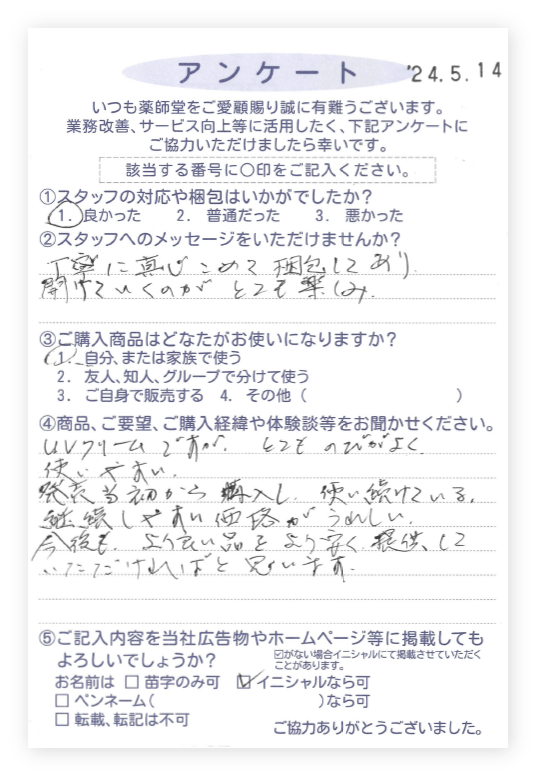 アンケート
'24.5.14
いつも薬師堂をご愛顧賜り誠に有難うございます。
業務改善、サービス向上等に活用したく、下記アンケートに
ご協力いただけましたら幸いです。
該当する番号に〇印をご記入ください。
①スタッフの対応や梱包はいかがでしたか?
1. 良かった 2. 普通だった 3. 悪かった
②スタッフへのメッセージをいただけませんか?
丁寧に真心こめて梱包してあり.
開けていくのが とても楽しみ.
③ご購入商品はどなたがお使いになりますか?
1. 自分、または家族で使う
2. 友人、知人、グループで分けて使う
3. ご自身で販売する 4. その他 ( )
④商品、ご要望、ご購入経緯や体験談等をお聞かせください。
UVクリームですが. とてものびがよく.
使いやすい.
発表当初から購入し. 使い続けている.
継続しやすい価格がうれしい.
今後も. より良い品をより安く. 提供して
いただければと思います.
⑤ご記入内容を当社広告物やホームページ等に掲載しても
よろしいでしょうか?
☑がない場合イニシャルにて掲載させていただく
ことがあります。
お名前は □ 苗字のみ可 ☑イニシャルなら可
□ ペンネーム( )なら可
□ 転載、転記は不可
ご協力ありがとうございました。